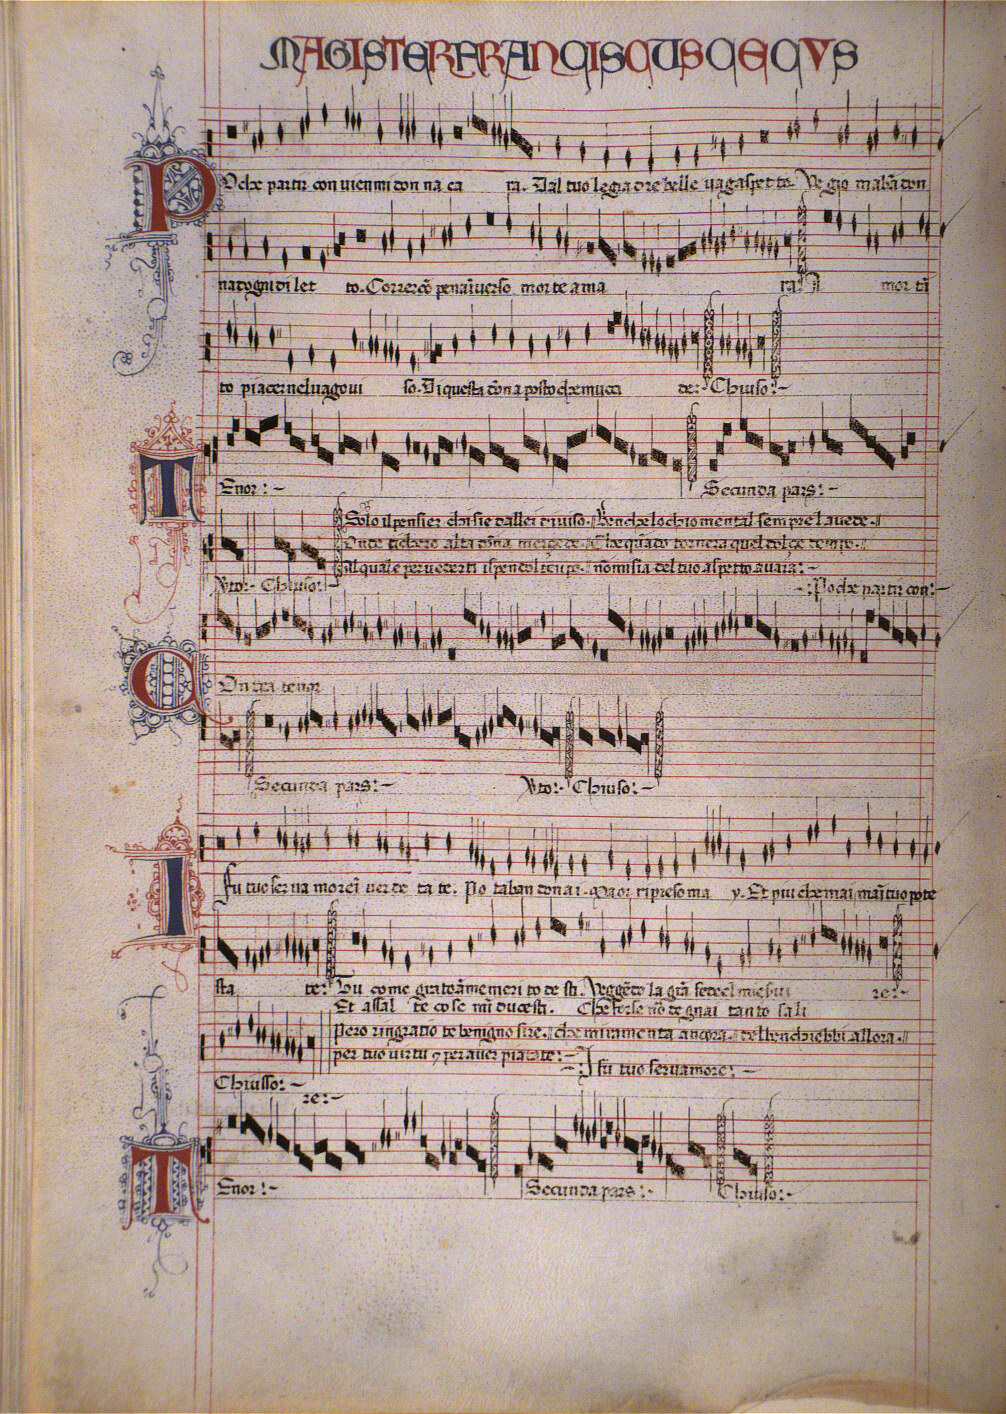 MAGISTER FRANCISCUS CECVS
POche partir con uien mi don na ca ra. Dal tuo legiadre belle uaga spet to. Ve gio
na dogni di let to. Correrō penāi uerso morte ama ra. mor tā
to piacer nel uago ui so. Di questa dōna posto che mucci de: Chiuso:~
TEnor:~ Secunda pars:~
Solo il pensier chi sie dallei diuiso. Ben che lochio mental sempre la uede.
Onde richero alta dōna mercede. Che quādo tornera quel dolçe tempo.
Al quale per uederti ispendol tēpo. non mi sia del tuo aspetto auara:~
Vto: Chiuso: :Po che partir con:~
COntra tenor
Secunda pars:~ Vto: Chiuso:~
IFu tuo ser ua mo re ī uer de ta te. Po taban dona i. Ma or ri preso ma y. Et piu che mai, māi tuo pote
sta te: Tu come grato ā me meri to de sti. Veggēdo la grā fede
re:~
Et assal te co se mi ducesti. Che forse nō de gnai tanto sali
Pero ringratio te benigno sire. che mi ramenta ancora.
per tuo uirtu et per auer piatate:~
:Ifu tuo seruamore:~
Chiusso:~
re:~
TEnor:~ Secunda pars:~ Chiuso:~